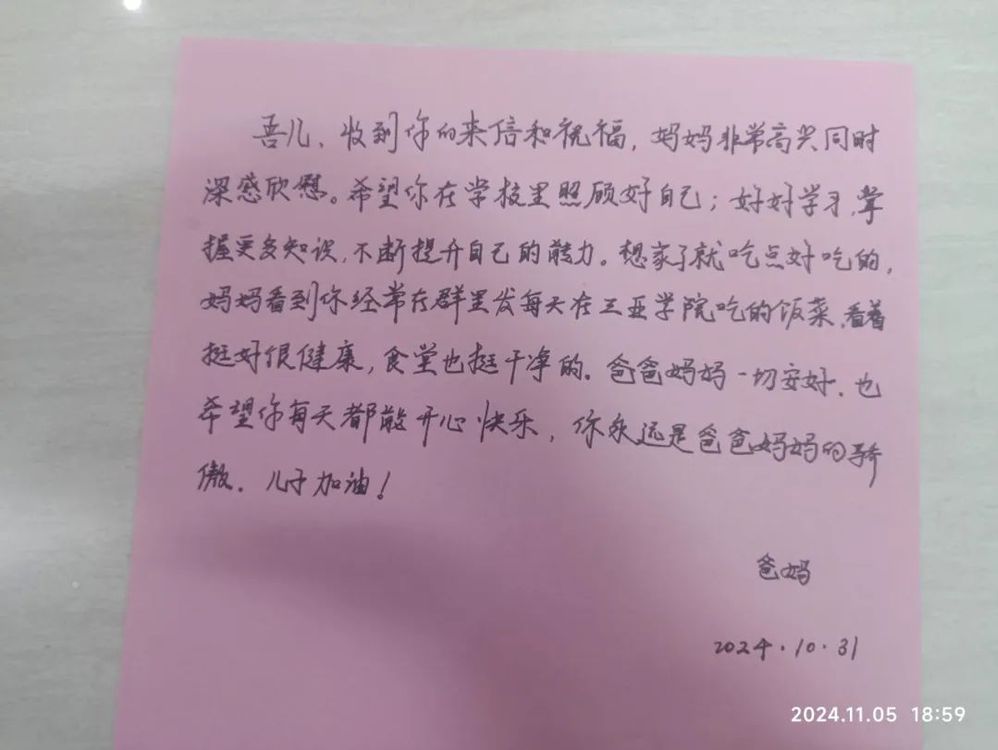 吾儿、收到你的来信和祝福，妈妈非常高兴同时
深感欣慰。希望你在学校里照顾好自己；好好学习，掌
握更多知识，不断提升自己的能力。想家了就吃点好吃的，
妈妈看到你经常在群里发每天在三亚学院吃的饭菜，看着
挺好很健康，食堂也挺干净的。爸爸妈妈一切安好．也
希望你每天都能开心快乐，你永远是爸爸妈妈的骄
傲．儿子加油！
爸妈
2024.10.31
2024.11.05 18:59